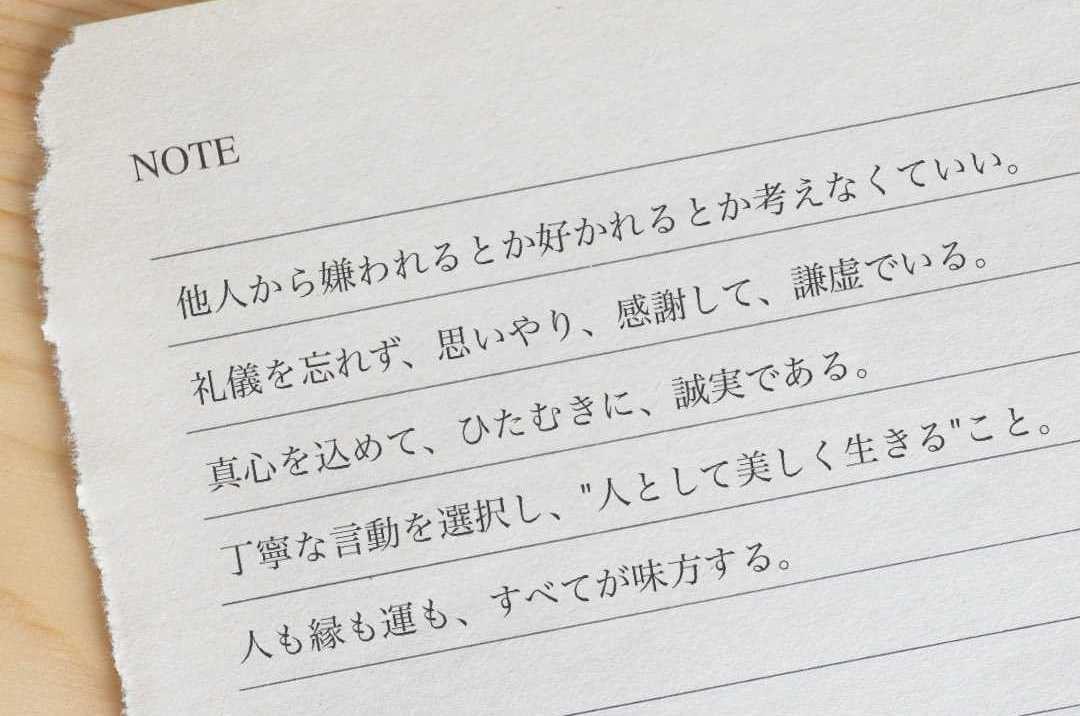 NOTE
他人から嫌われるとか好かれるとか考えなくていい。
礼儀を忘れず、思いやり、感謝して、謙虚でいる。
真心を込めて、ひたむきに、誠実である。
丁寧な言動を選択し、"人として美しく生きる"こと。
人も縁も運も、すべてが味方する。